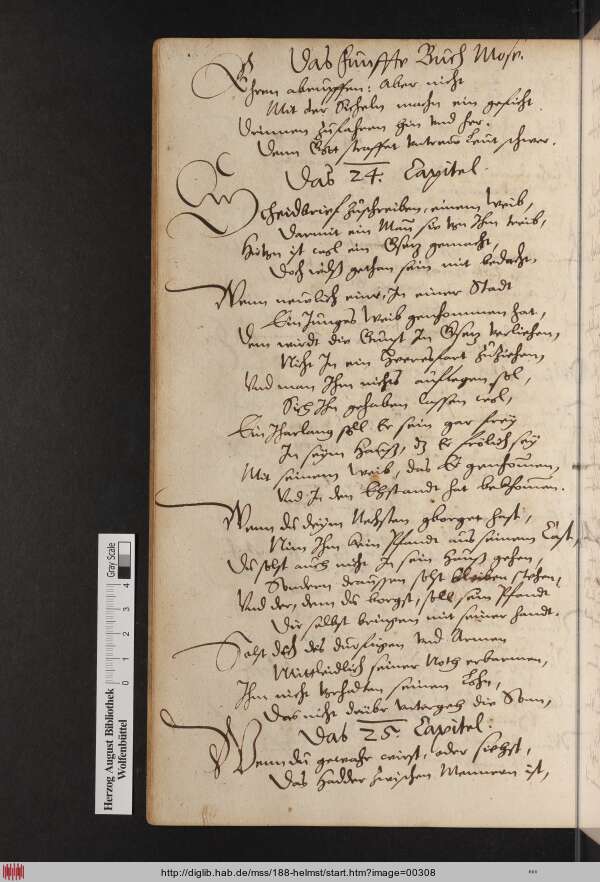 Das Funffte Buch Mose.
Ehern abrupffen: Aber nicht
Mit der Sicheln machn ein gesicht
Drinnen zufahren hin und her,
Denn Gott straffet untreue Leut schwer.
Das 24. Capitel.
Scheidbrief zuschreiben, einem Weib,
Darmit ein Man sie von Ihm treib,
Hirtzu ist wol ein Gsetz gemacht,
Doch mus gethan sein mit bedacht.
Wenn neulich einer, In einer Stadt
Ein Junges Weib genhommen hat,
Dem wirdt die Gunst Im Gsetz verliehen,
Nicht In ein Heeresfart zuziehen,
Und man Ihm nichts aufflegen sol,
Sich Ihn gehaben lassen wol,
Ein Jharlang soll Er sein gar frey
In seym Hauß, dz Er frolich sey
Mit seinem Weib, das Er genhommen,
Und In den Ehstandt hat bekhommen.
Wenn du deym Nehsten gborget hast,
Nim Ihm kein Pfandt aus seinem Cast,
Du solst auch nicht In sein Hauß gehen,
Sondern draussen solst bleiben stehen,
Und der, dem du borgst, soll sein Pfandt
Dir selbst bringen mit seiner handt.
Solst dich des durfftigen und Armen
Mittleidlich seiner Noth erbarmen,
Ihm nicht vorhalten seinen Lohn,
Das nicht drüber untergeh die Sonn,
Das 25. Capitel.
Wenn du gewahr wirst, oder siehst,
Das Hadder zwischen Mennern ist,
Herzog August Bibliothek
Wolfenbüttel
Gray Scale
0 1 2 3 4
http://diglib.hab.de/mss/188-helmst/start.htm?image=00308